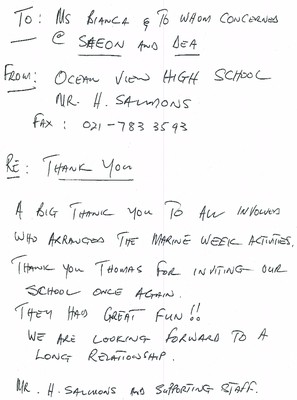 TO: MS BIANCA & TO WHOM CONCERNED
@ SAEON AND DEA
FROM: OCEAN VIEW HIGH SCHOOL
MR. H. SALMONS
FAX: 021-783 3593
RE: THANK YOU
A BIG THANK YOU TO ALL INVOLVED
WHO ARRANGED THE MARINE WEEK ACTIVITIES.
THANK YOU THOMAS FOR INVITING OUR
SCHOOL ONCE AGAIN.
THEY HAD GREAT FUN!!
WE ARE LOOKING FORWARD TO A
LONG RELATIONSHIP.
MR. H. SALMONS AND SUPPORTING STAFF.